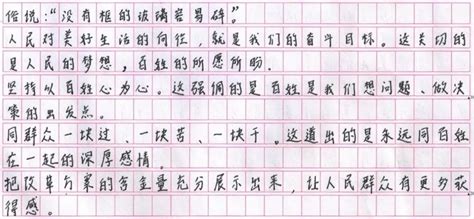 俗说:“没有框的玻璃容易碎”。
人民对美好生活的向往,就是我们的奋斗目标。这关切的
是人民的梦想,百姓的所愿所盼。
坚持以百姓心为心。这强调的是百姓是我们想问题、做决
策的出发点。
同群众一块过、一块苦、一块干。这道出的是永远同百姓
在一起的深厚感情。
把改革方案的含金量充分展示出来,让人民群众有更多获
得感。